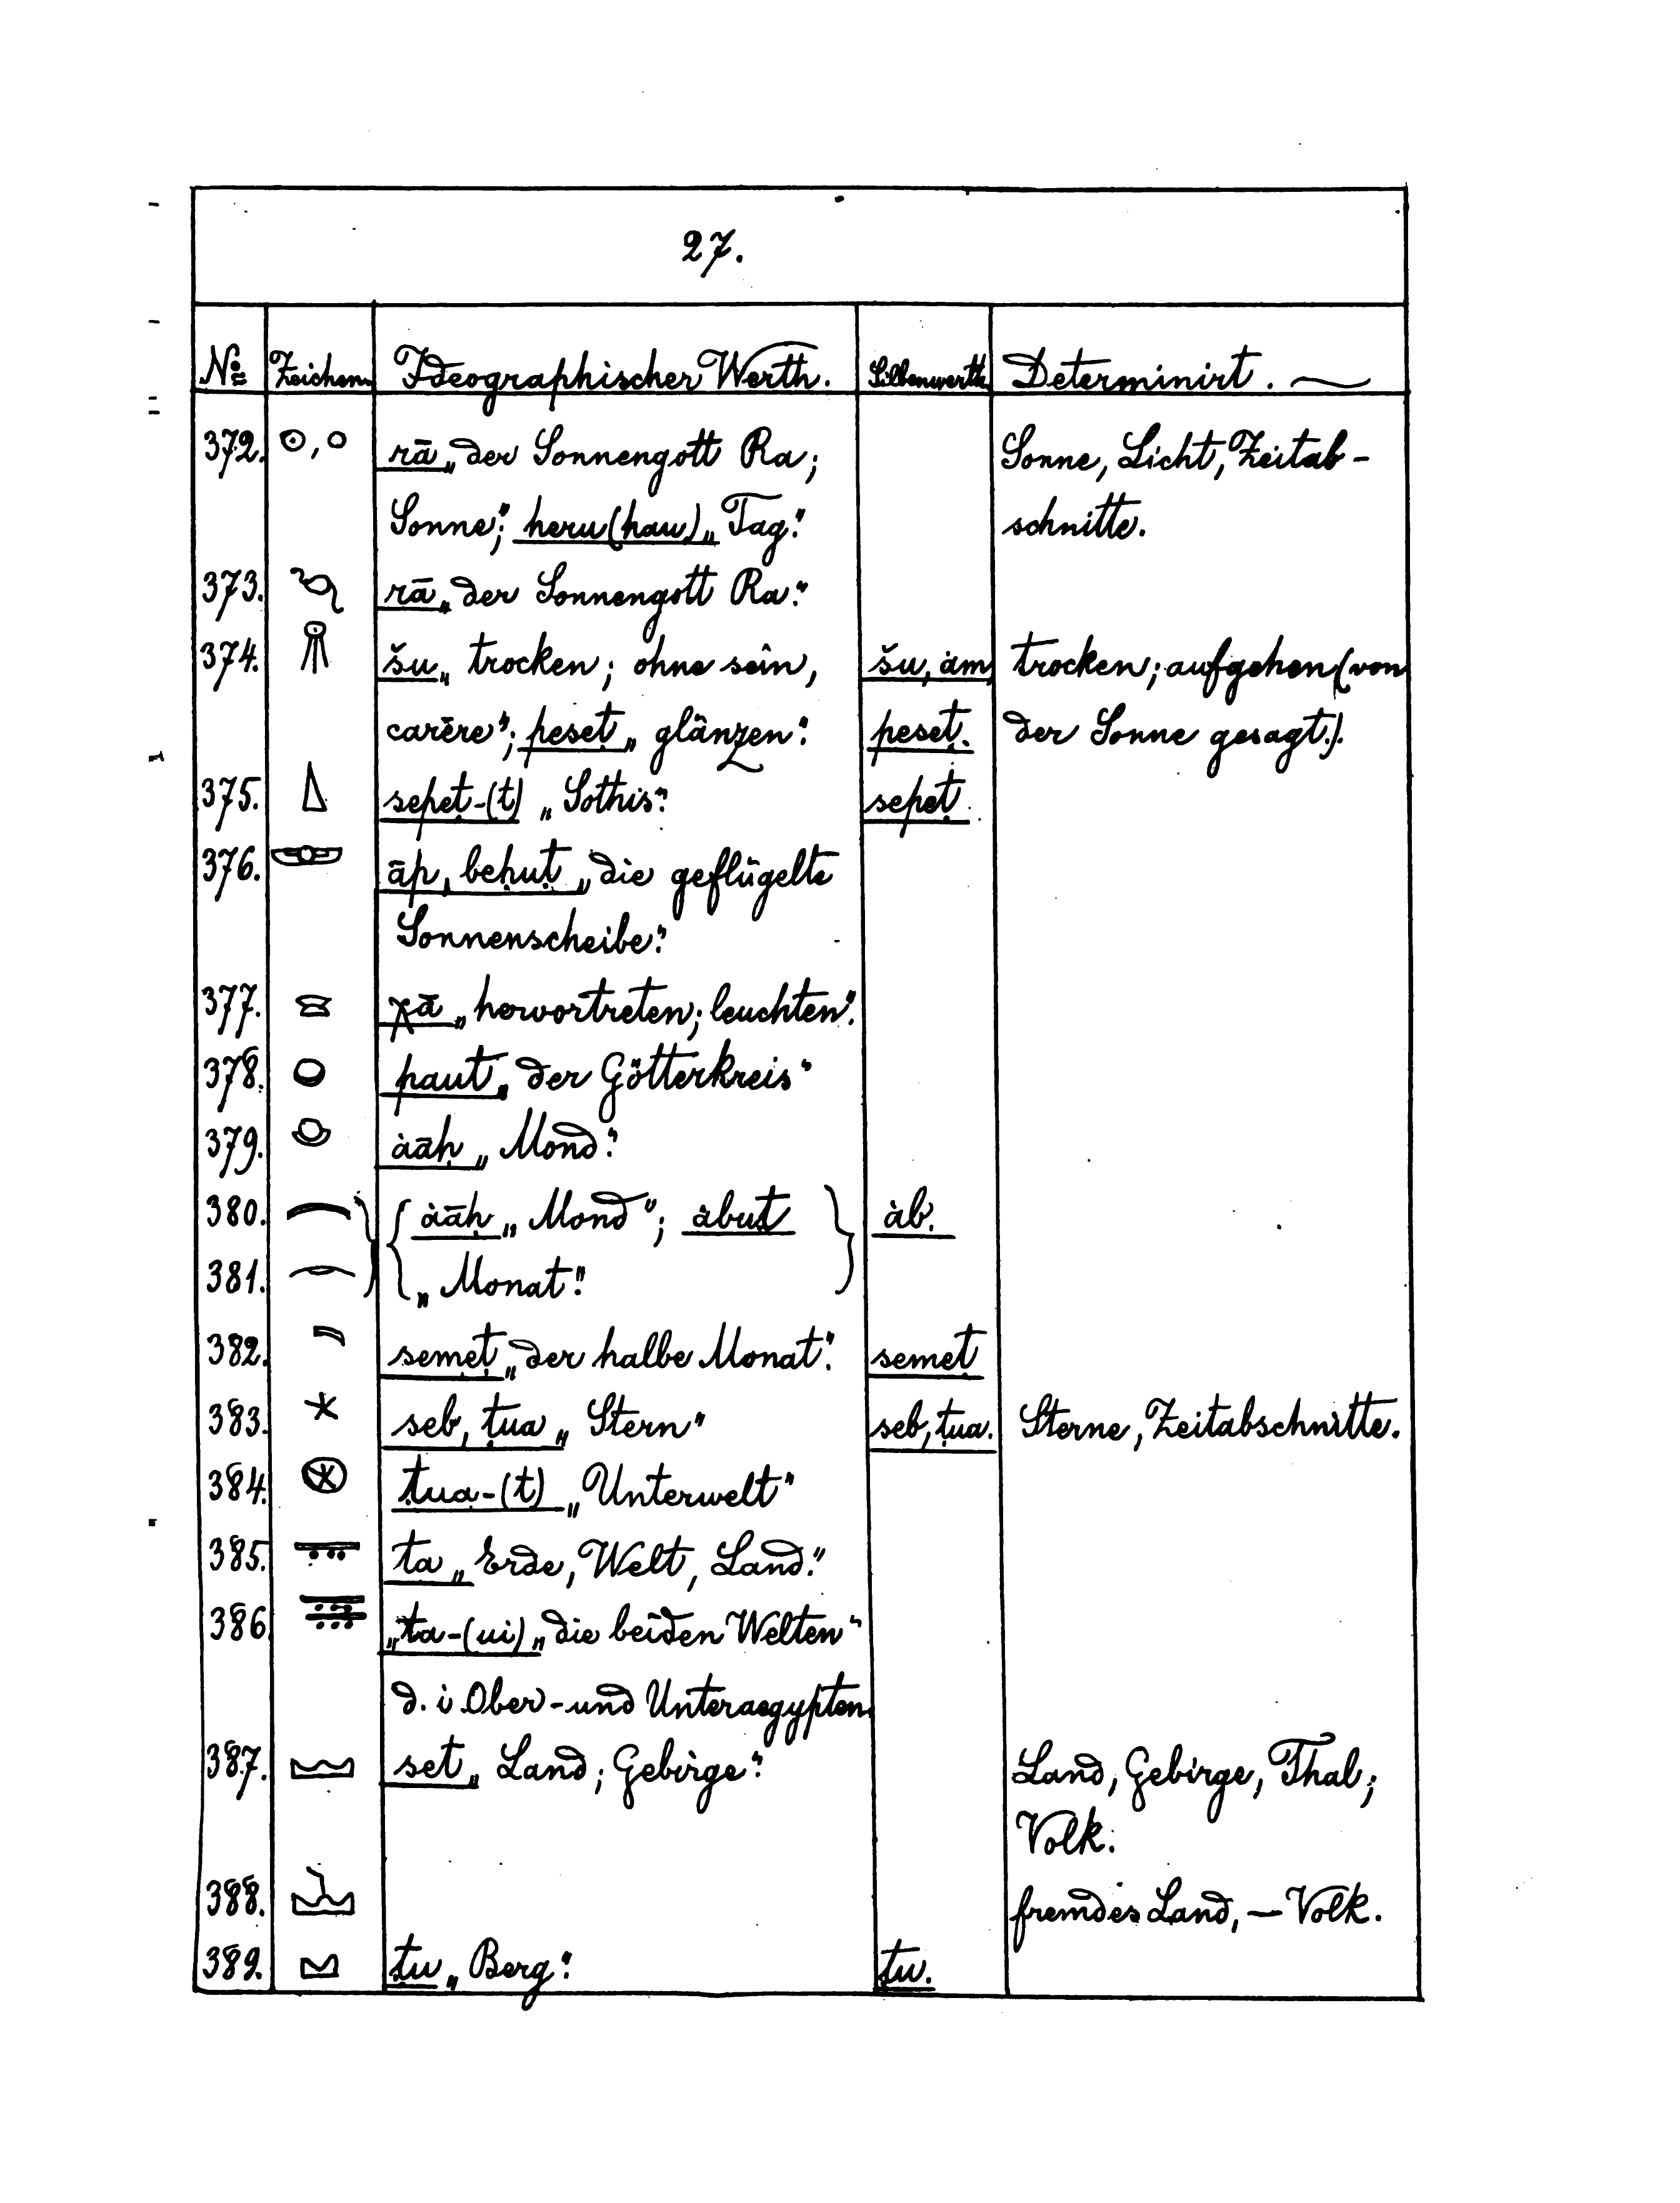 27.
No Zeichen. Ideographischer Werth. Silbenwerth Determinirt.
372. ☉, ○ rā „der Sonnengott Ra; Sonne, Licht, Zeitab-
Sonne“; heru (hau) „Tag“. schnitte.
373. rā „der Sonnengott Ra“.
374. šu „trocken; ohne sein, šu, àm trocken; aufgehen (von
carēre“; peseṭ „glänzen“. peseṭ. der Sonne gesagt.).
375. sepeṭ-(t) „Sothis“. sepeṭ
376. āp, beḥuṭ „die geflügelte
Sonnenscheibe“.
377. χā „hervortreten; leuchten“.
378. paut „der Götterkreis“
379. àāḥ „Mond“.
380. àāḥ „Mond“; àbuṭ àb.
381. „Monat“.
382. semeṭ „der halbe Monat“. semeṭ
383. seb, ṭua „Stern“ seb, ṭua. Sterne, Zeitabschnitte.
384. ṭua-(t) „Unterwelt“
385. ta „Erde, Welt, Land“.
386 „ta-(ui) „die beiden Welten“
d. i. Ober- und Unteraegypten.
387. set „Land; Gebirge“. Land, Gebirge, Thal;
Volk.
388. fremdes Land, — Volk.
389. ṭu „Berg“. ṭu.